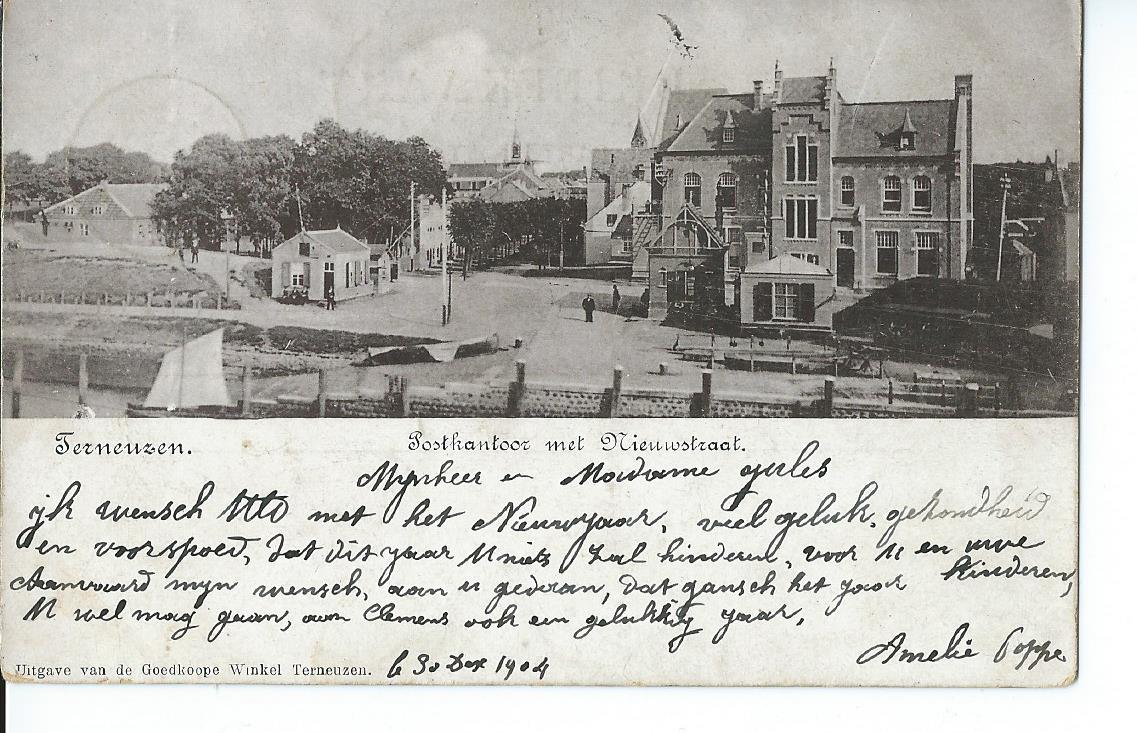 Terneuzen. Postkantoor met Nieuwstraat.
Mynheer en Madame jules
ijk wensch UED met het Nieuwjaar, veel geluk, gezondheid
en voorspoed, dat dit jaar U niets zal hinderen, voor U en uwe Kinderen,
Aanvaard myn wensch, aan u gedaan, dat gansch het jaar
U wel mag gaan, aan Clemens ook een gelukkig jaar,
Amelie Poppe
Uitgave van de Goedkoope Winkel Terneuzen. 30 Dec 1904